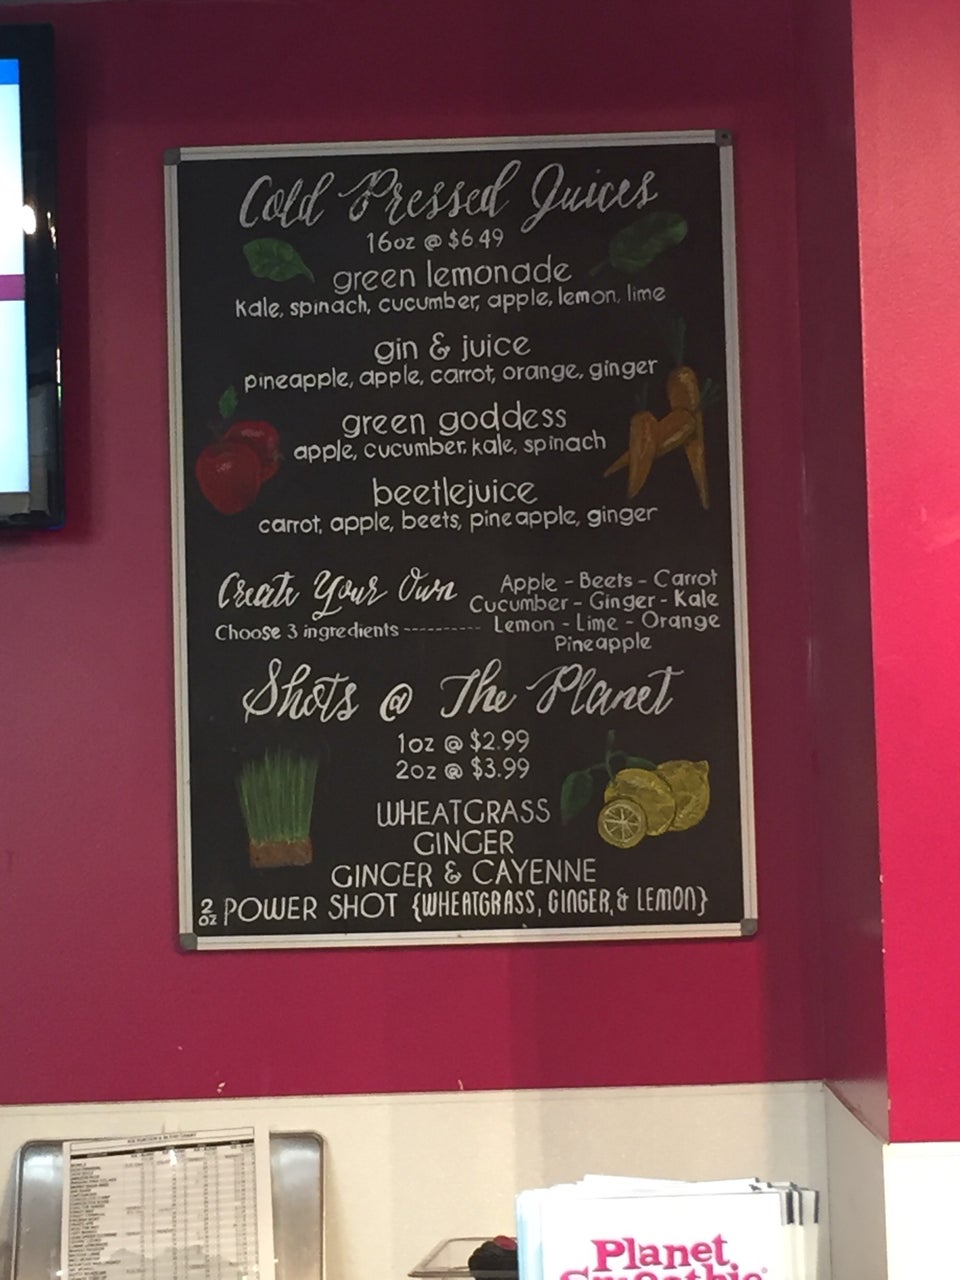 Cold Pressed Juices
16oz @ $6 49
green lemonade
kale, spinach, cucumber, apple, lemon, lime
gin & juice
pineapple, apple, carrot, orange, ginger
green goddess
apple, cucumber, kale, spinach
beetlejuice
carrot, apple, beets, pineapple, ginger
Create Your Own
Choose 3 ingredients ----------
Apple - Beets - Carrot
Cucumber - Ginger - Kale
Lemon - Lime - Orange
Pineapple
Shots @ The Planet
1oz @ $2.99
2oz @ $3.99
WHEATGRASS
GINGER
GINGER & CAYENNE
2 oz POWER SHOT {WHEATGRASS, GINGER, & LEMON}
Planet
Smoothie®